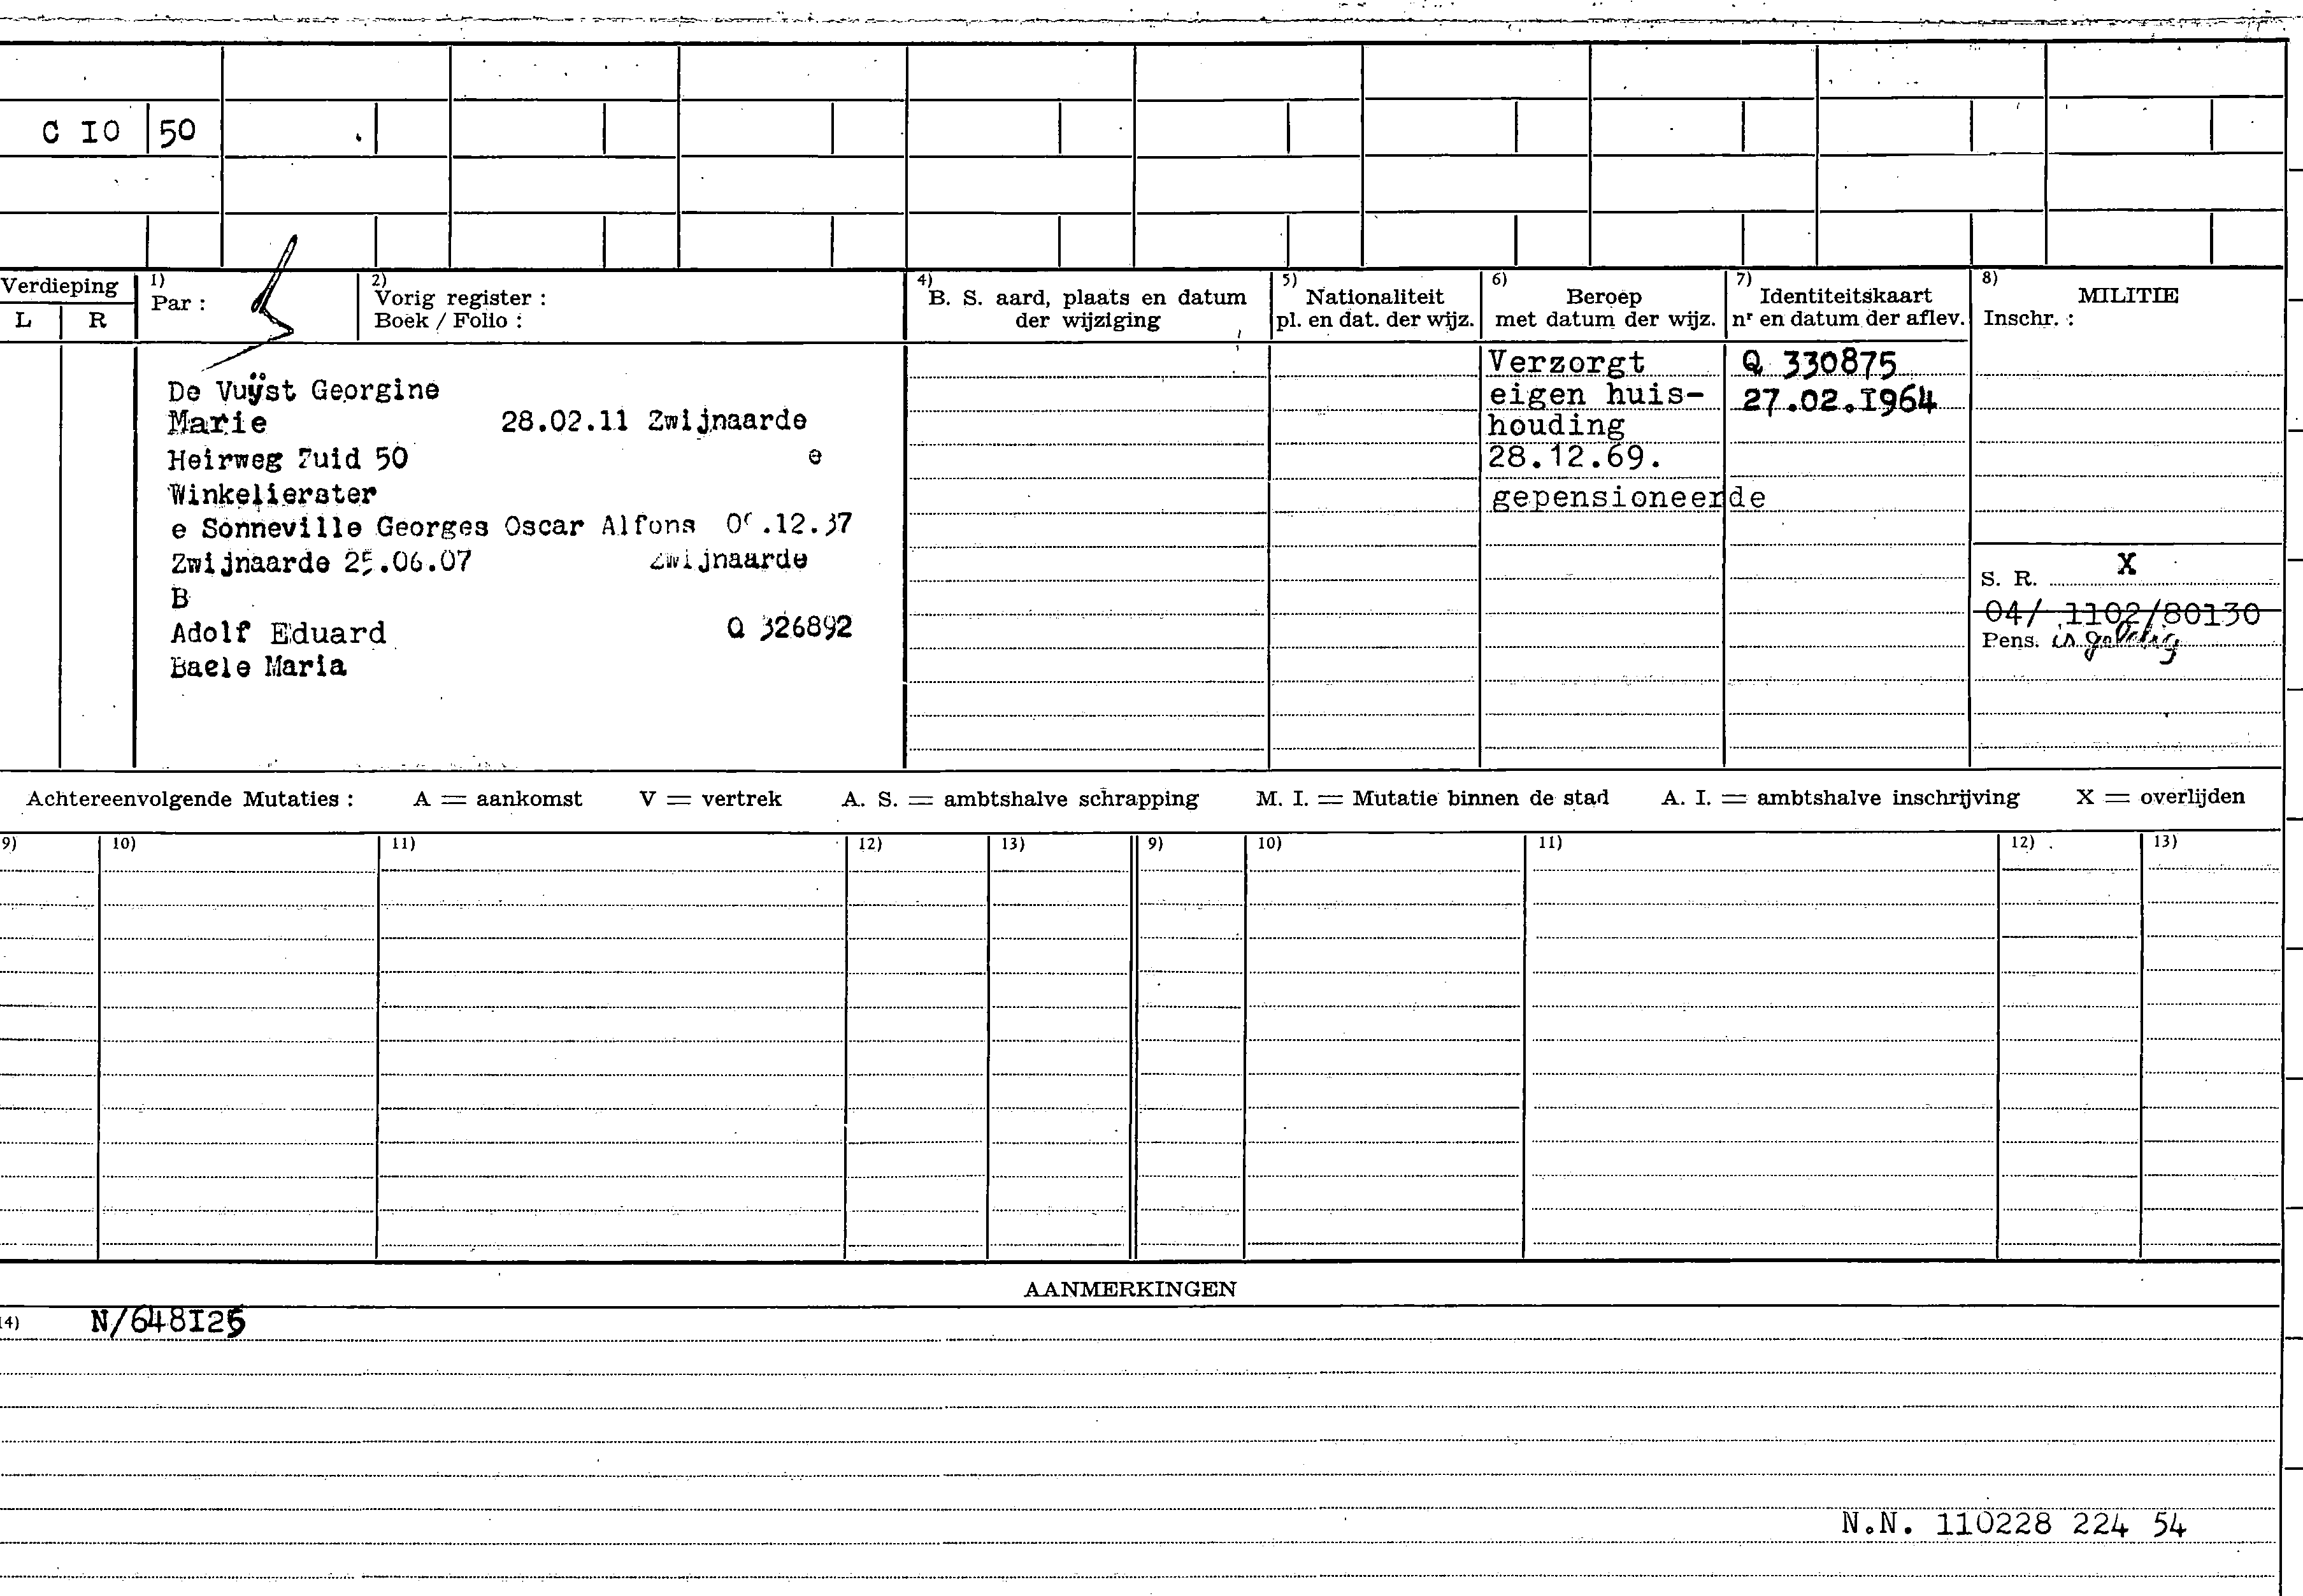 C IO 50
Verdieping
L R
1)
Par :
2)
Vorig register :
Boek / Folio :
4)
B. S. aard, plaats en datum
der wijziging
5)
Nationaliteit
pl. en dat. der wijz.
6)
Beroep
met datum der wijz.
7)
Identiteitskaart
nr en datum der aflev.
8)
MILITIE
Inschr. :
De Vuÿst Georgine
Marie 28.02.11 Zwijnaarde
Heirweg Zuid 50 e
Winkelierster
e Sonneville Georges Oscar Alfons .12.37
Zwijnaarde 25.06.07 Zwijnaarde
B
Adolf Eduard Q 326892
Baele Maria
Verzorgt
eigen huis-
houding
28.12.69.
gepensioneerde
Q 330875
27.02.I964
X
S. R.
04/ 1102/80130
Pens. is
Achtereenvolgende Mutaties : A = aankomst V = vertrek A. S. = ambtshalve schrapping M. I. = Mutatie binnen de stad A. I. = ambtshalve inschrijving X = overlijden
9) 10) 11) 12) 13) 9) 10) 11) 12) 13)
AANMERKINGEN
14) N/648I25
N.N. 110228 224 54